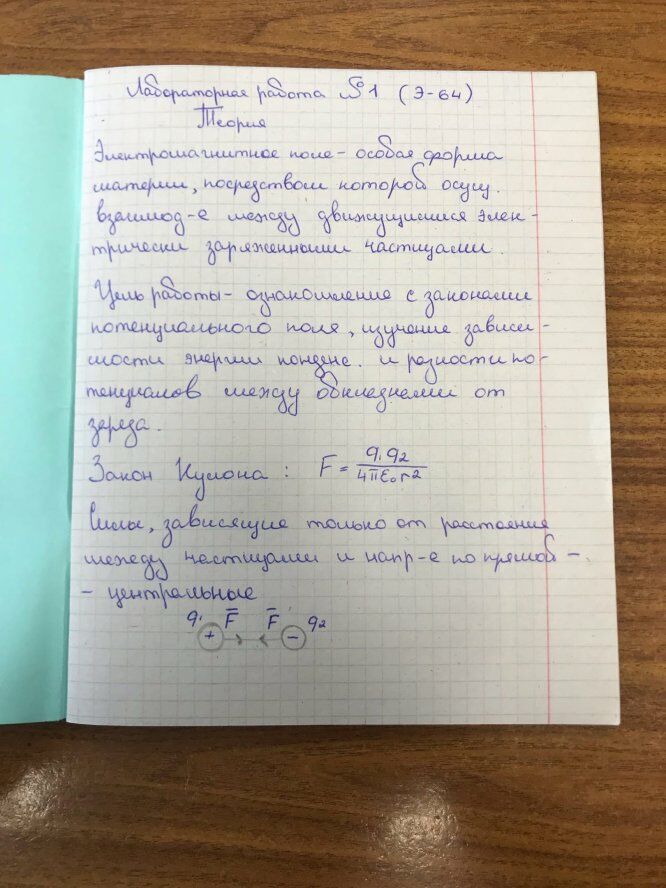 Лабораторная работа №1 (Э-64)
Теория
Электромагнитное поле - особая форма
материи, посредством которой осущ.
взаимод-е между движущимися элек-
трически заряженными частицами.
Цель работы - ознакомление с законами
потенциального поля, изучение зависи-
мости энергии конденс. и разности по-
тенциалов между обкладками от
заряда.
Закон Кулона: F = q₁q₂/4πε₀r²
Силы, зависящие только от расстояния
между частицами и напр-е по прямой -
- центральные
q₁ F̅ F̅ q₂
+ −